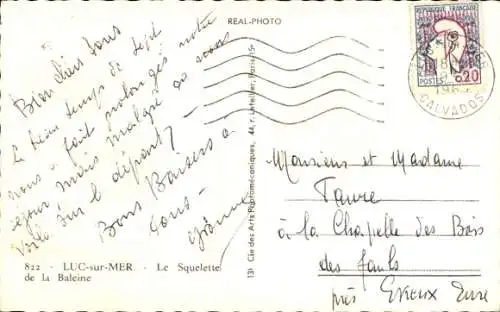 REAL-PHOTO
Bien chers tous
Le beau temps de Sept
nous a fait prolonger notre
séjour mais malgré ça nous
voilà sur le départ,
Bons Baisers à
tous -
822 - LUC-sur-MER - Le Squelette
de la Baleine
131 Cie des Arts Photomécaniques, 44, r. Letellier, Paris-15e
REPUBLIQUE FRANÇAISE
POSTES 0,20
18
CALVADOS
Monsieur et Madame
Favre
à la Chapelle des Bois
des Fauls
près EVREUX Eure